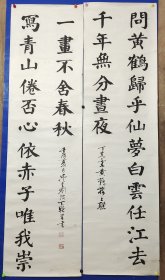 問黃鶴歸乎仙夢白雲任江去
千年無分晝夜
一畫不舍春秋
寫青山倦否心依赤子唯我崇